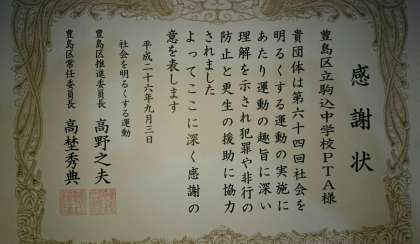 感謝状
豊島区立駒込中学校PTA様
貴団体は第六十四回社会を
明るくする運動の実施に
あたり運動の趣旨に深い
理解を示され犯罪や非行の
防止と更生の援助に協力
されました
よってここに深く感謝の
意を表します
平成二十六年九月三日
社会を明るくする運動
豊島区推進委員長 高野之夫
豊島区常任委員長 高埜秀典